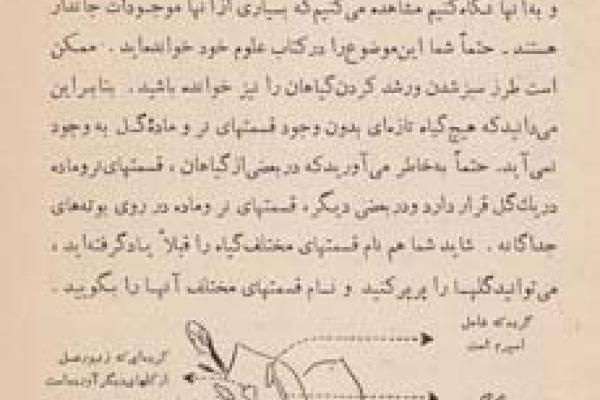 و به آنها نگاه کنیم مشاهده می‌کنیم که بسیاری از آنها موجودات جاندار
هستند . حتماً شما این موضوع را در کتاب علوم خود خوانده‌اید . ممکن
است طرز سبز شدن و رشد کردن گیاهان را نیز خوانده باشید . بنابراین
می‌دانید که هیچ گیاه تازه‌ای بدون وجود قسمتهای نر و مادهٔ گل به وجود
نمی‌آید. حتماً به‌خاطر می‌آورید که در بعضی از گیاهان ، قسمتهای نر و ماده
در یك گل قرار دارد و در بعضی دیگر، قسمتهای نر و ماده در روی بوته‌های
جداگانه . شاید شما هم نام قسمتهای مختلف گیاه را قبلاً یاد گرفته‌اید ،
می‌توانید گلها را پرپر کنید و نام قسمتهای مختلف آنها را بگویید .
گرده که عامل
اسپرم است
گرده‌ای که زنبور عسل
از گلهای دیگر آورده است